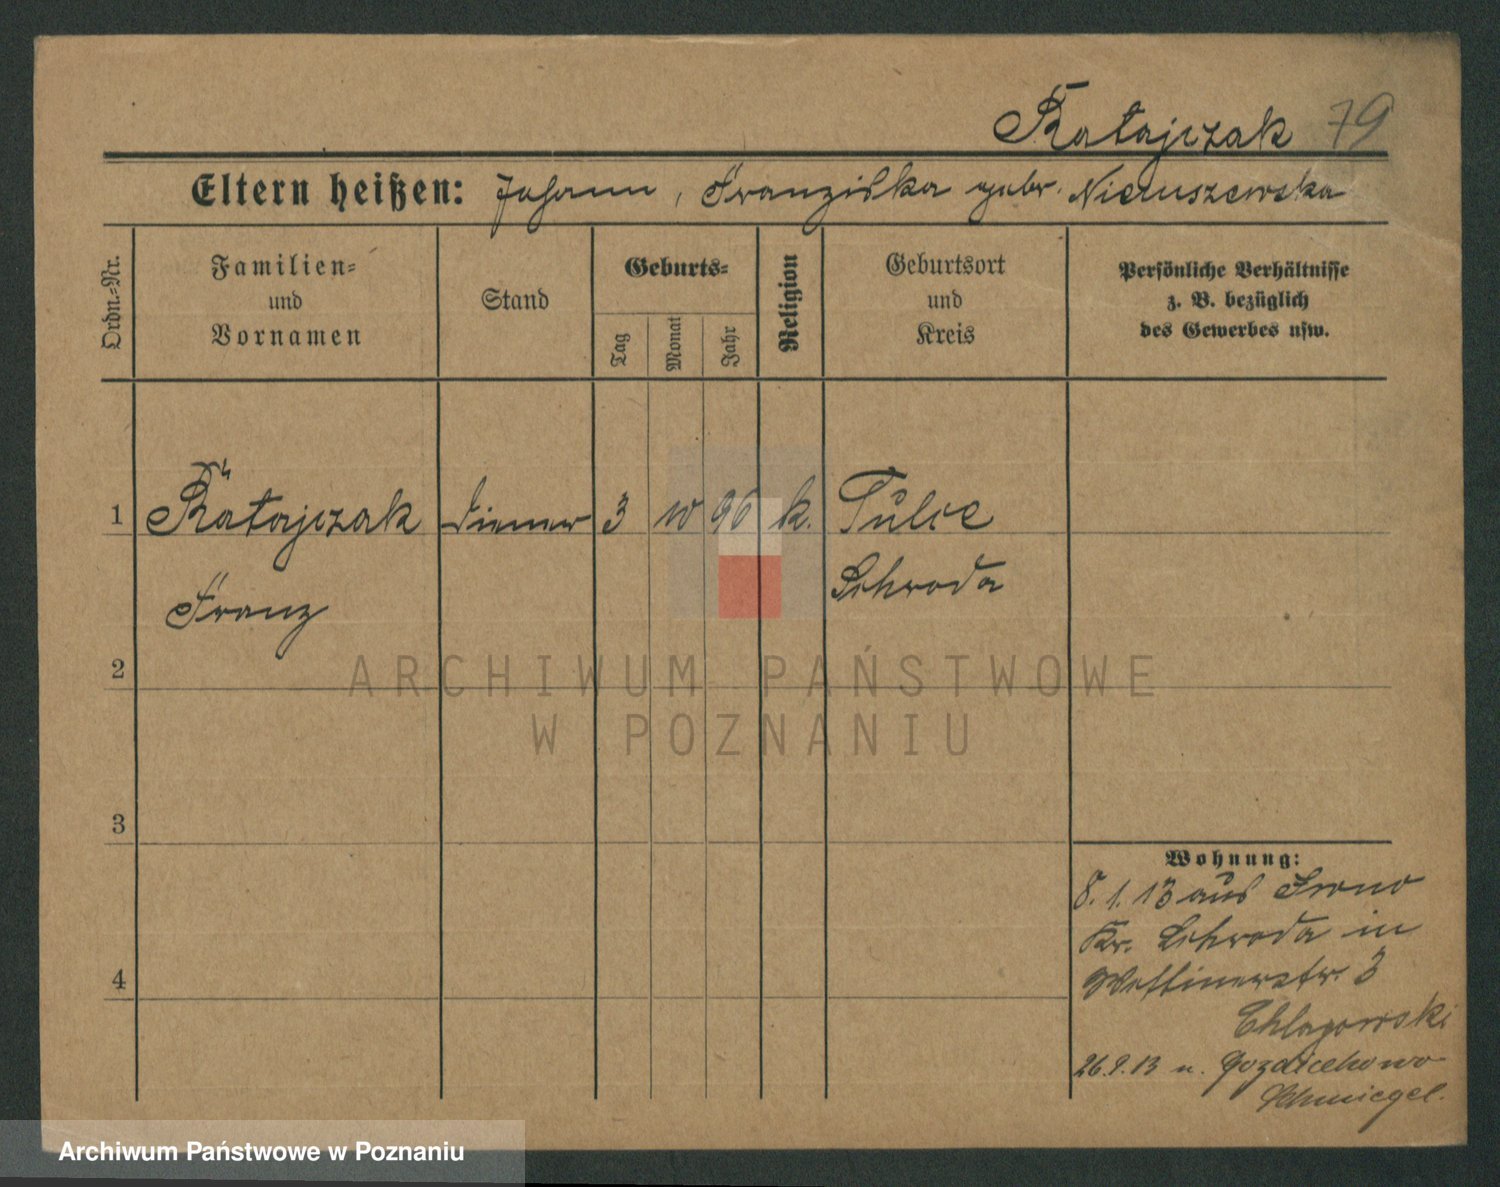 Ratajczak 79
Eltern heißen: Johann, Franziska gebr. Nieruszewska
Ordn.-Nr.
Familien-
und
Vornamen
Stand
Geburts-
Tag
Monat
Jahr
Religion
Geburtsort
und
Kreis
Persönliche Verhältnisse
z. B. bezüglich
des Gewerbes usw.
1 Ratajczak Diener 3 10 96 k. Tulce
Schroda
Franz
2
3
4
ARCHIWUM PAŃSTWOWE
W POZNANIU
Wohnung:
8. 1. 13 aus
Kr. Schroda in
Wettinerstr. 3
Chlapowski
26.9.13 n.
Schmiegel.
Archiwum Państwowe w Poznaniu